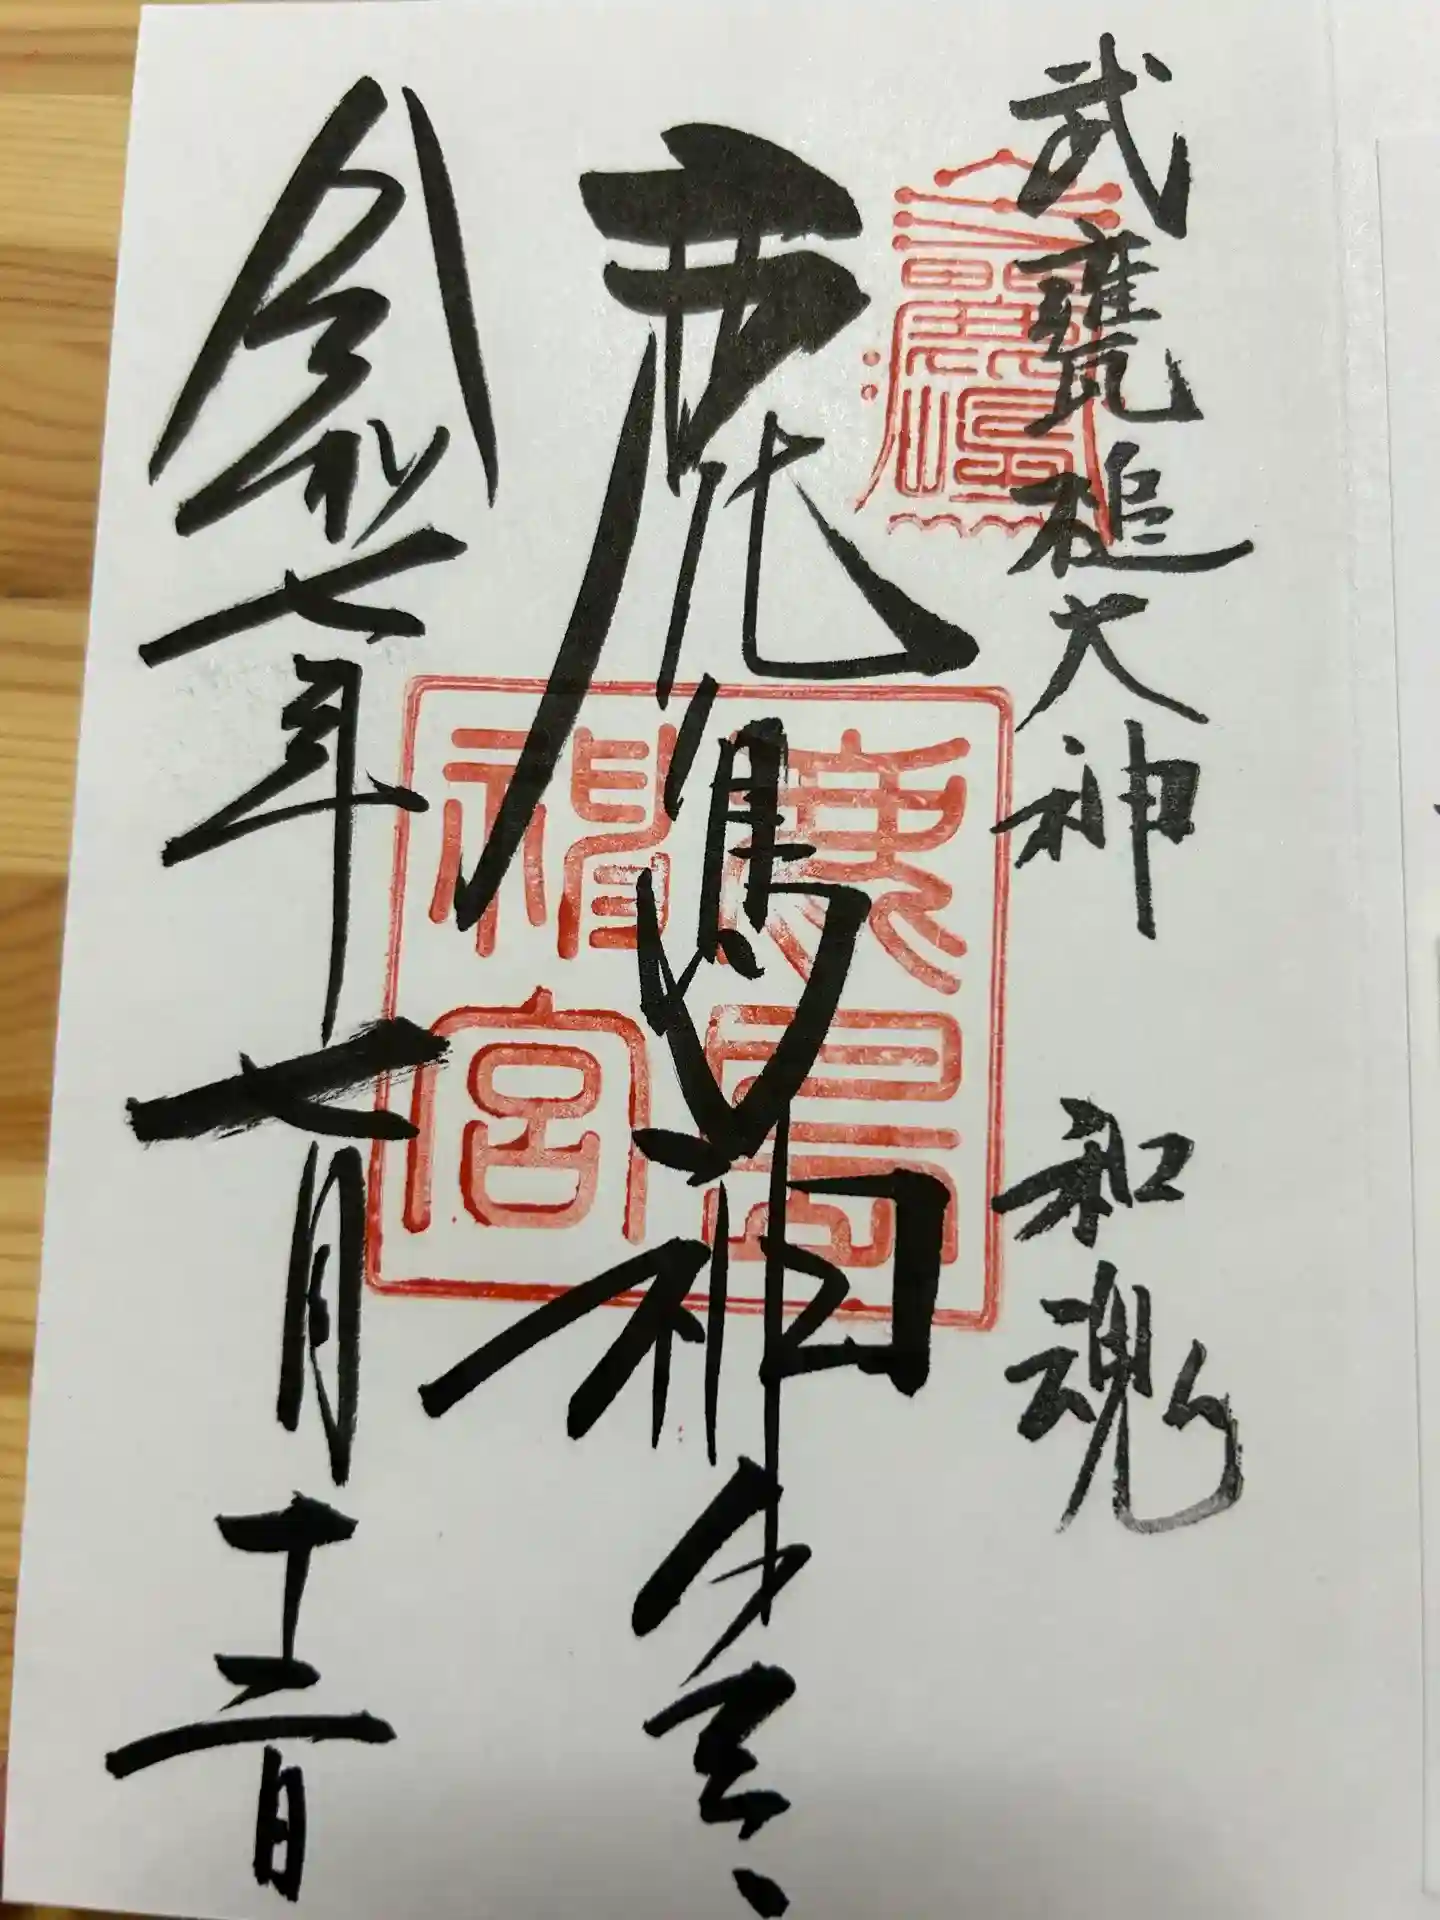 武甕槌大神 和魂
鹿島神宮
令和七年七月十二日
鹿島
神宮